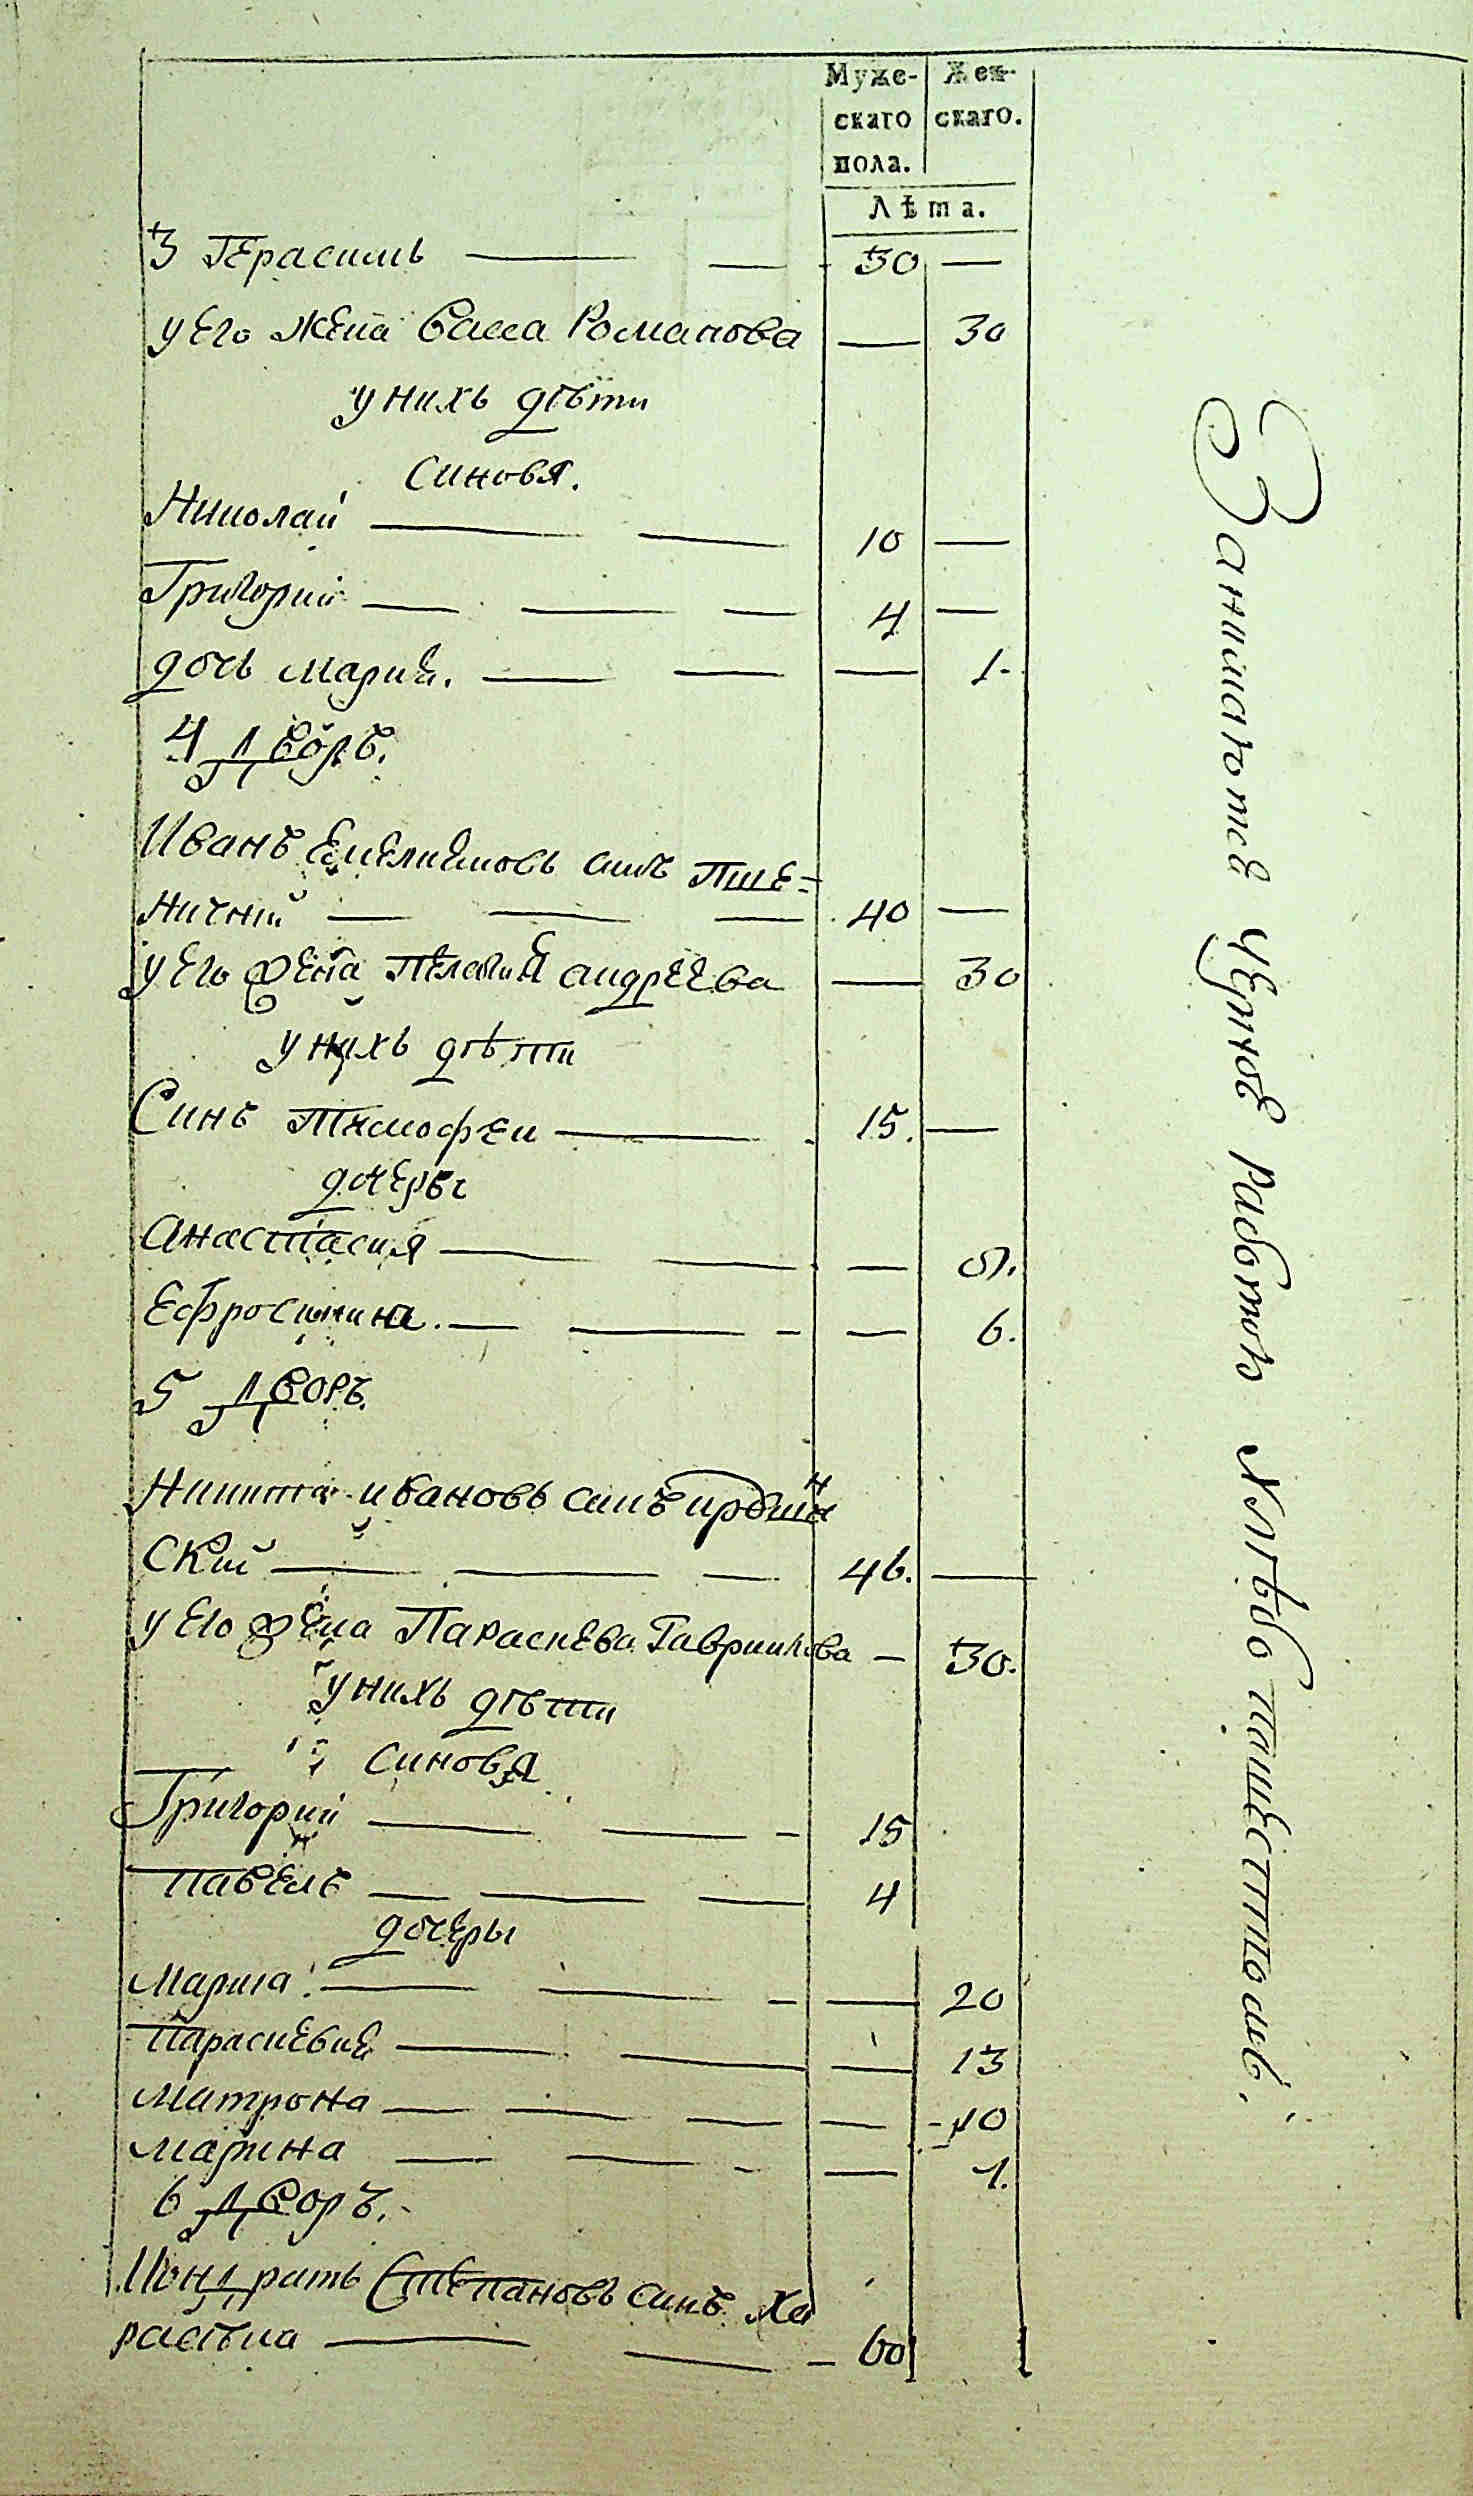 Муже- Жен-
скаго скаго.
пола.
Лѣта.
3 Герасимъ — — 30 —
у его жена Васса Романова — 30
у нихъ дѣти
синовя.
Николай — — 10 —
Григорий — — — 4 —
дочь Мария. — — — 1.
4 дворъ.
Иванъ Емелиановъ синъ Пше=
ничний — — — 40 —
у его жена Пелагия Андреева — 30
у нихъ дѣти
Синъ Тимофеи — 15. —
дочеры
Анастасия — — —
Ефросинина. — — — 6.
5 дворъ.
Никита ивановъ синъ
ский — — — 46. —
у его жена Параскева Гавриилова — 30.
у нихъ дѣти
синовя
Григорий — — - 15
Павелъ — — — 4
дочеры
Мария — — - — 20
Параскевия — — — 13
Матрона — — — — 10
Марина — — - — 1.
6 дворъ.
Кондратъ Степановъ синъ Ха
— — 60
Занимаются черной работой хлѣбопашествомъ.